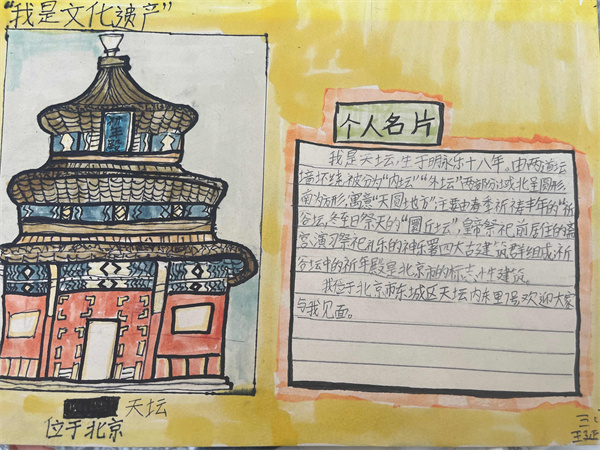 "我是文化遗产"
祈年殿
天坛
位于北京
个人名片
我是天坛,生于明永乐十八年。由两道坛
墙环绕,被分为"内坛""外坛"两部分,城北呈圆形,
南为方形,寓意"天圆地方",主要由春季祈祷丰年的"祈
谷坛,冬至日祭天的"圜丘坛",皇帝祭祀前居住的斋
宫,演习祭祀礼乐的神乐署四大古建筑群组成,祈
谷坛中的祈年殿是北京市的标志性建筑。
我位于北京市东城区天坛内东里
欢迎大家
与我见面。
三
王